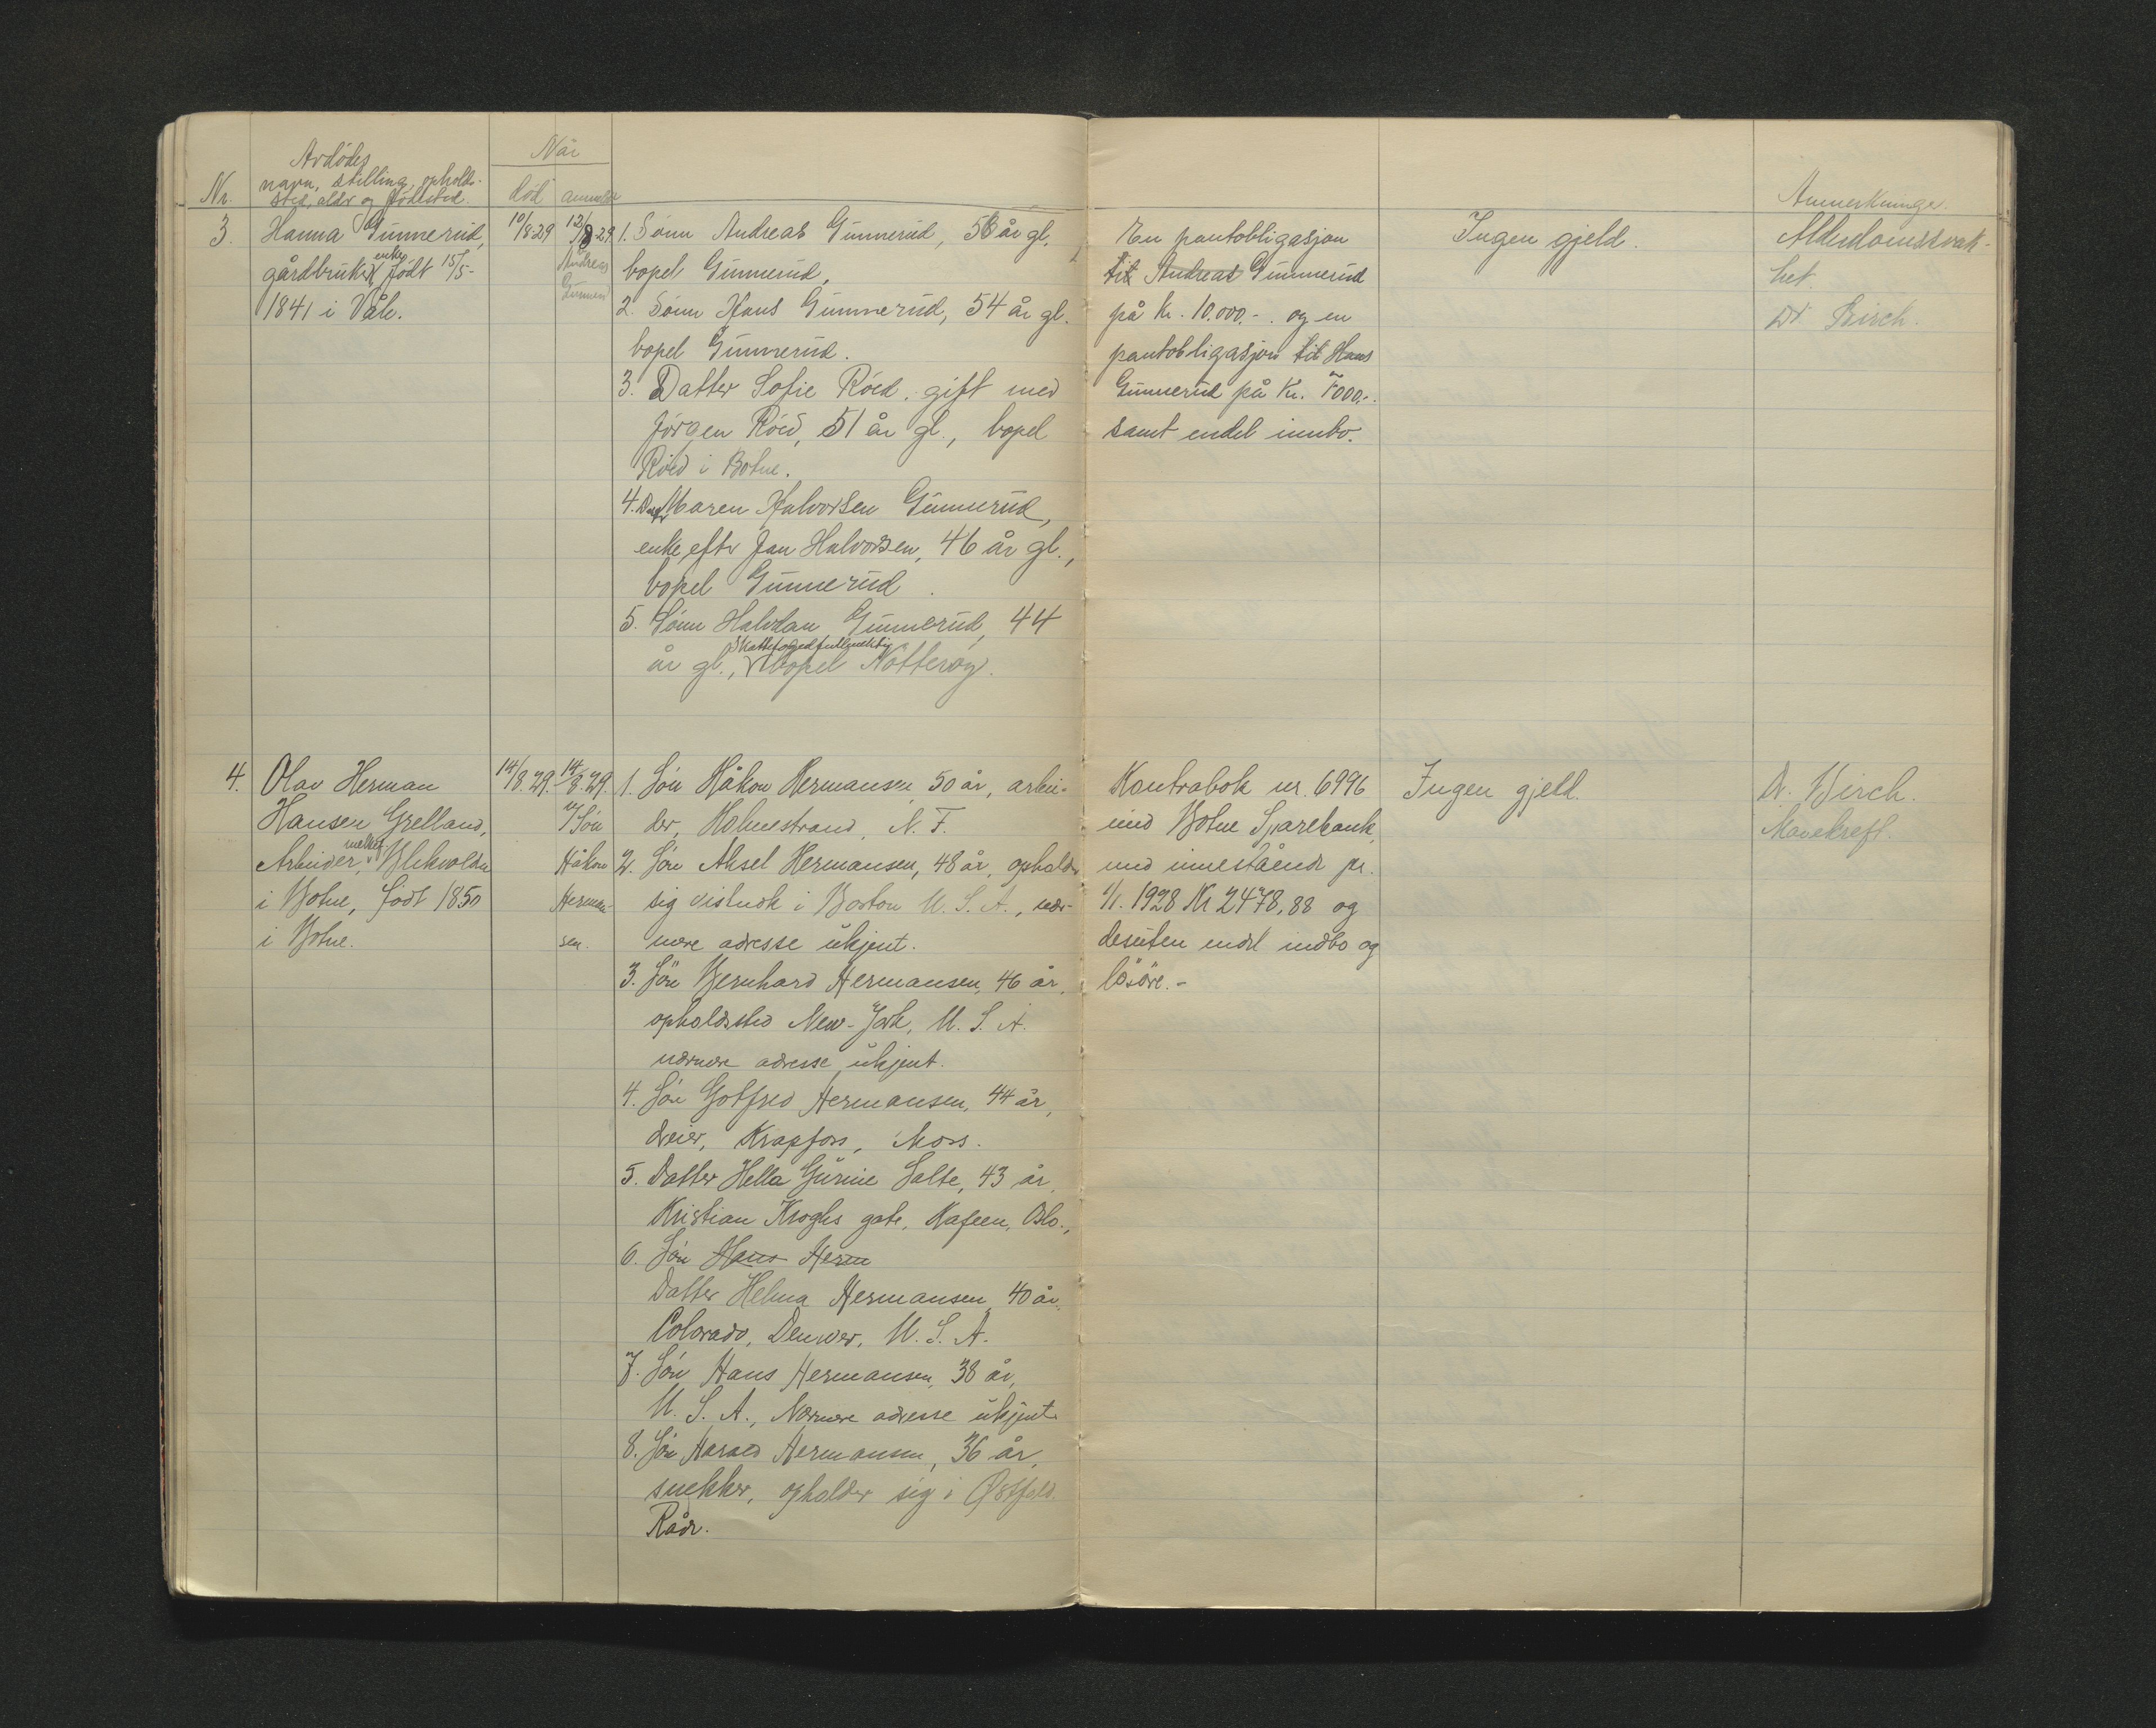 Avdødes
navn, stilling, opholds-
sted, alder og fødested.
Nr.
Når
død
anmeldt
Anmerkninger.
3.
Hanna Gunnerud,
gårdbruker enke født 15/5-
1841 i Våle.
10/8-29
12/8 29
Andreas
1. Sønn Andreas Gunnerud, 58 år gl.
bopel Gunnerud.
2. Sønn Hans Gunnerud, 54 år gl.
bopel Gunnerud.
3. Datter Sofie Röed, gift med
Jörgen Röed, 51 år gl., bopel
Röed i Botne.
4. Maren Halvorsen Gunnerud,
enke eftr Jan Halvorsen, 46 år gl.,
bopel Gunnerud.
5. Sönn Halvdan Gunnerud, 44
år gl., Skattefogedfullmektig bopel Nötteröy.
En pantobligasjon
til Andreas Gunnerud
på kr. 10.000.- og en
pantobligasjon til Hans
Gunnerud på kr. 7000.-
samt endel innbo.
Ingen gjeld.
Alderdomssvak-
het.
Dr Birch.
4.
Olav Herman
Hansen Grelland,
Arbeider,
i Botne, født 1850
i Botne.
14/8.29.
14/8.29.
v/ Sön
Håkon
Herman-
sen.
1. Sön Håkon Hermansen, 50 år, arbei-
der, Holmestrand, N. F.
2. Sön Aksel Hermansen, 48 år, opholder
sig vistnok i Boston U. S. A., nær-
mere adresse ukjent.
3. Sön Bernhard Hermansen, 46 år,
opholdssted New-York, U. S. A.
nærmere adresse ukjent.
4. Sön Gotfred Hermansen, 44 år,
dreier, Krapfoss, Moss.
5. Datter Hella Salte, 43 år,
Kristian Kroghs gate, Kafeen, Oslo.,
6. Sön Hans Herm
Datter Helma Hermansen, 40 år,
Colorado, Denwer, U. S. A.
7. Sön Hans Hermansen, 38 år,
U. S. A., Nærmere adresse ukjent.
8. Sön Harald Hermansen, 36 år,
snekker, opholder sig i Østfold.
Råde.
Kontrabok nr. 6996
med Botne Sparebank,
med innestående pr.
1/1. 1928 Kr 2478,88 og
desuten endel indbo og
lösöre.-
Ingen gjeld.
Dr. Birch.
Mavekreft.